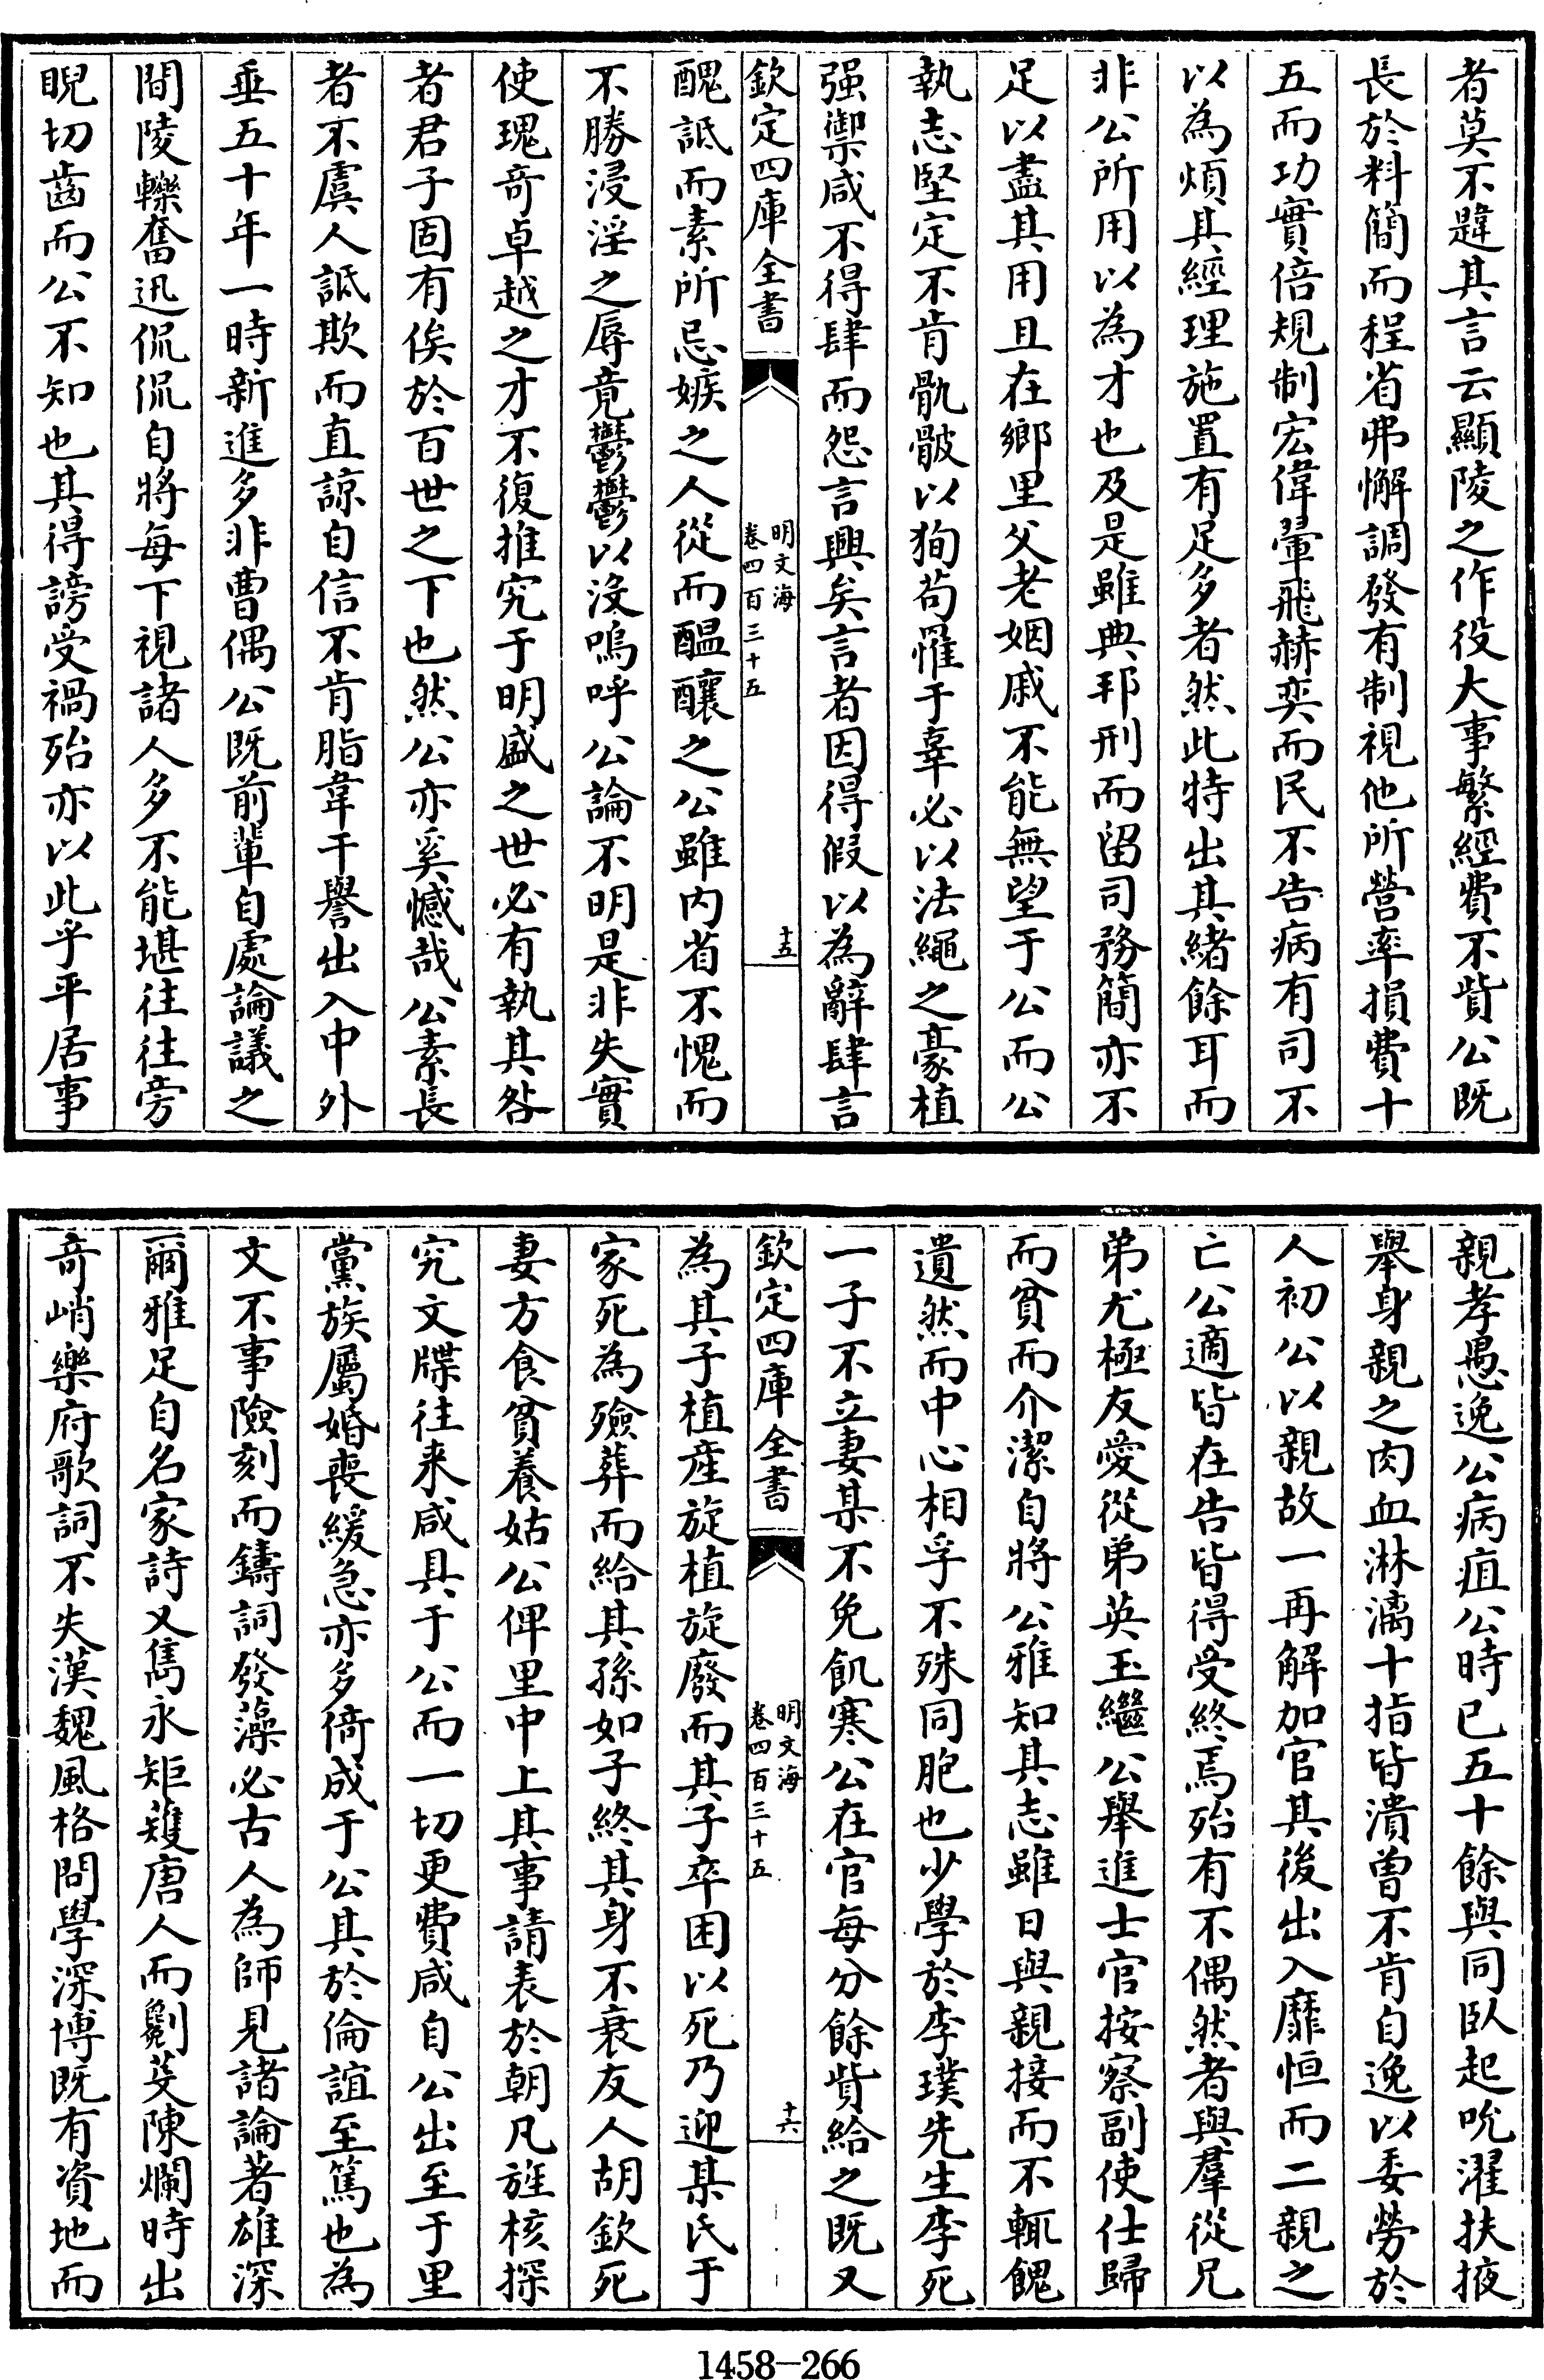 者莫不韙其言云顯陵之作役大事繁經費不貲公既
長於料簡而程省弗懈調發有制視他所營率損費十
五而功實倍規制宏偉翬飛赫奕而民不告病有司不
以為煩其經理施置有足多者然此特出其緒餘耳而
非公所用以為才也及是雖典邦刑而留司務簡亦不
足以盡其用且在鄉里父老姻戚不能無望于公而公
執志堅定不肯骩骳以狥苟罹于辜必以法繩之豪植
强禦咸不得肆而怨言興矣言者因得假以為辭肆言
欽定四庫全書
明文海
卷四百三十五
十五
醜詆而素所忌嫉之人從而醖釀之公雖内省不愧而
不勝浸淫之辱竟鬱鬱以沒嗚呼公論不明是非失實
使瑰奇卓越之才不復推究于明盛之世必有執其咎
者君子固有俟於百世之下也然公亦奚憾哉公素長
者不虞人詆欺而直諒自信不肯脂韋干譽出入中外
垂五十年一時新進多非曹偶公既前輩自處論議之
間陵轢奮迅侃侃自將每下視諸人多不能堪往往旁
睨切齒而公不知也其得謗受禍殆亦以此乎平居事
親孝愚逸公病疽公時已五十餘與同臥起吮濯扶掖
舉身親之肉血淋漓十指皆潰曾不肯自逸以委勞於
人初公以親故一再解加官其後出入靡恒而二親之
亡公適皆在告皆得受終焉殆有不偶然者與羣從兄
弟尤極友愛從弟英玉繼公舉進士官按察副使仕歸
而貧而介潔自將公雅知其志雖日與親接而不輒餽
遺然而中心相孚不殊同胞也少學於李璞先生李死
一子不立妻某不免飢寒公在官每分餘貲給之既又
欽定四庫全書
明文海
卷四百三十五
十六
為其子植産旋植旋廢而其子卒困以死乃迎某氏于
家死為殮葬而給其孫如子終其身不衰友人胡欽死
妻方食貧養姑公俾里中上其事請表於朝凡旌核探
究文牒往来咸具于公而一切更費咸自公出至于里
黨族屬婚喪緩急亦多倚成于公其於倫誼至篤也為
文不事險刻而鑄詞發藻必古人為師見諸論著雄深
爾雅足自名家詩又雋永矩矱唐人而劖芟陳爛時出
奇峭樂府歌詞不失漢魏風格問學深博既有資地而
1458-266